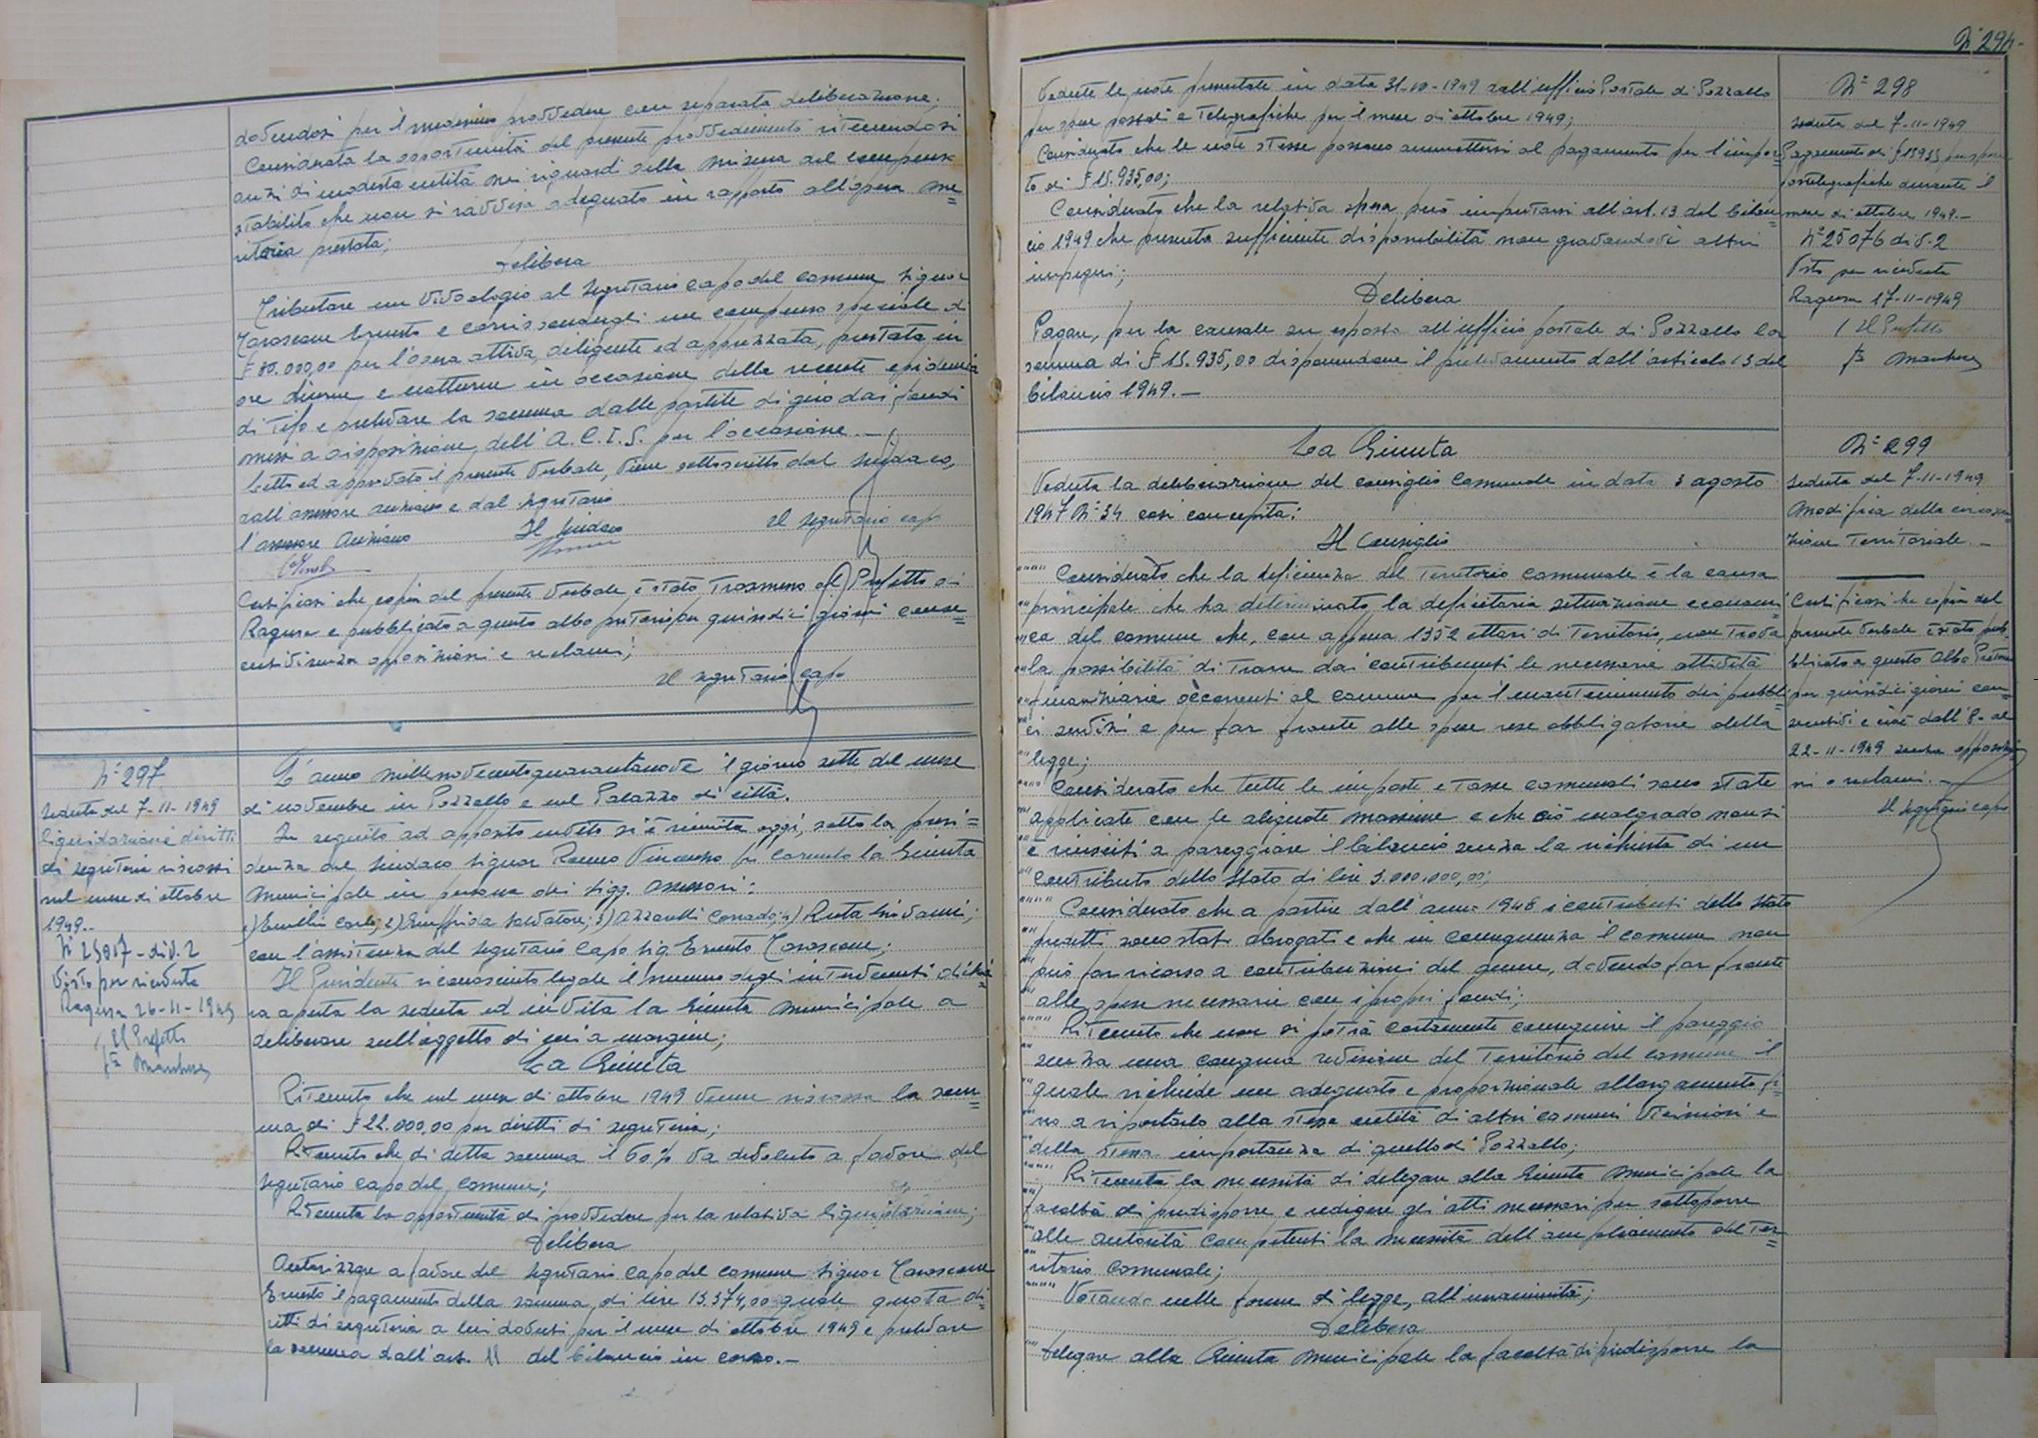 dovendosi per il medesimo provvedere con separata deliberazione;
Considerata la opportunità del presente provvedimento ritenendosi
anzi di modesta entità nei riguardi della misura del compenso
stabilito che non si ravvisa adeguato in rapporto all'opera me=
ritoria prestata;
Delibera
Tributare un vivo elogio al segretario capo del comune signor
Carascone Ernesto e corrispondergli un compenso speciale di
£ 80.000,00 per l'opera attiva, diligente ed apprezzata, prestata in
ore diurne e notturne in occasione della recente epidemia
di Tifo e prelevare la somma dalle partite di giro dai fondi
messi a disposizione dell'A.C.I.S. per l'occasione.—
Letto ed approvato il presente verbale, viene sottoscritto dal sindaco,
dall'assessore anziano e dal segretario
l'assessore anziano Il sindaco Il segretario capo
Certificasi che copia del presente verbale è stato trasmesso al Prefetto di
Ragusa e pubblicato a questo albo pretorio per quindici giorni conse=
cutivi senza opposizioni e reclami;
Il segretario capo
N° 297
Seduta del 7-11-1949
Liquidazione diritti
di segreteria riscossi
nel mese di ottobre
1949..
div. 2
Visto per ricevuta
Ragusa 26-11-1949
Il Prefetto
L'anno millenovecentoquarantanove il giorno sette del mese
di novembre in Pozzallo e nel Palazzo di città.
In seguito ad apposito invito si è riunita oggi, sotto la presi=
denza del sindaco signor Vincenzo fu Carmelo la Giunta
Municipale in persona dei sigg. assessori:
1) Carlo; 2) Giuffrida Salvatore; 3) Azzarelli Corrado; 4) Ruta Giovanni;
con l'assistenza del segretario capo sig. Ernesto Carascone;
Il Presidente riconosciuto legale il numero degli intervenuti dichia
ra aperta la seduta ed invita la Giunta Municipale a
deliberare sull'oggetto di cui a margine;
La Giunta
Ritenuto che nel mese di ottobre 1949 venne riscossa la som=
ma di £ 22.000,00 per diritti di segreteria;
Ritenuto che di detta somma il 60% va devoluto a favore del
segretario capo del comune;
Ritenuta la opportunità di provvedere per la relativa liquidazione;
Delibera
Autorizzare a favore del segretario capo del comune signor Carascone
Ernesto il pagamento della somma di lire 13.374,00 quale quota di=
ritti di segreteria a lui dovuti per il mese di ottobre 1949 e prelevare
la somma dall'art. 11 del bilancio in corso.—
N° 294-
Vedute le note presentate in data 31-10-1949 dall'ufficio Postale di Pozzallo
per spese postali e Telegrafiche per il mese di ottobre 1949;
Considerato che le note stesse possono ammettersi al pagamento per l'impor=
to di £ 15.935,00;
Considerato che la relativa spesa può imputarsi all'art. 13 del bilan=
cio 1949 che presenta sufficiente disponibilità non gravandovi altri
impegni;
Delibera
Pagare, per la causale su esposta all'ufficio postale di Pozzallo la
somma di £ 15.935,00 disponendone il prelevamento dall'articolo 13 del
bilancio 1949.—
N° 298
Seduta del 7-11-1949
Pagamento di £ 15935 per spese
postelegrafiche durante il
mese di ottobre 1949.—
N° 25076 div. 2
Visto per ricevuta
Ragusa 17-11-1949
Il Prefetto
La Giunta
Veduta la deliberazione del consiglio Comunale in data 3 agosto
1947 N° 34 così concepita:
Il Consiglio
"" Considerato che la deficienza del Territorio comunale è la causa
"" principale che ha determinato la deficitaria situazione economi
"" ca del comune che, con appena 1352 ettari di Territorio, non trova
"" la possibilità di trarre dai contribuenti le necessarie attività
"" finanziarie occorrenti al comune per il mantenimento dei pubbli=
"" ci servizi e per far fronte alle spese rese obbligatorie della
"" legge;
"" Considerato che tutte le imposte e tasse comunali sono state
"" applicate con le aliquote massime e che ciò malgrado non si
"" è riusciti a pareggiare il bilancio senza la richiesta di un
"" contributo dello stato di lire 3.000.000,00;
"" Considerato che a partire dall'anno 1948 i contributi dello stato
"" predetti sono stati abrogati e che in conseguenza il comune non
"" può far ricorso a contribuzioni del genere, dovendo far fronte
"" alle spese necessarie con i propri fondi;
"" Ritenuto che non si potrà certamente conseguire il pareggio
"" senza una congrua revisione del Territorio del comune il
"" quale richiede un adeguato e proporzionale allargamento fi=
"" no a riportarlo alla stessa entità di altri comuni viciniori e
"" della stessa importanza di quello di Pozzallo;
"" Ritenuta la necessità di delegare alla Giunta Municipale la
"" facoltà di predisporre e redigere gli atti necessari per sottoporre
"" alle autorità competenti la necessità dell'ampliamento del Ter=
"" ritorio comunale;
"" Votando nelle forme di legge, all'unanimità;
Delibera
"" Delegare alla Giunta Municipale la facoltà di predisporre la
N° 299
Seduta del 7-11-1949
Modifica della circoscri=
zione Territoriale.—
Certificasi che copia del
presente verbale è stato pub=
blicato a questo Albo Pretorio
per quindici giorni con=
secutivi e cioè dall'8- al
22-11-1949 senza opposizio
ni o reclami.—
Il segretario capo